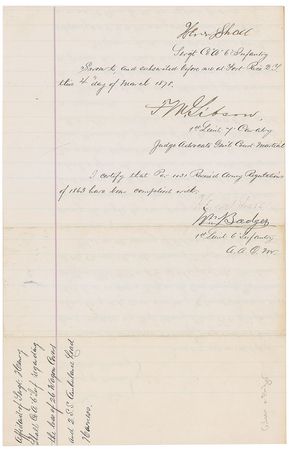 Henry Shall
Sergt Co "A" 6" Infantry
Sworn to and subscribed before me at Fort Rice D.T.
this 4" day of March 1875.
F. M. Gibson
1st Lieut 7" Cavalry
Judge Advocate Genl Court Martial
I certify that Par 1031 Revised Army Regulations
of 1863 have been complied with.
Wm Badger
1st Lieut 6" Infantry
A.A.Q.M.
Affidavit of Sergt Henry
Shall Co "A" 6 Inf regarding
the loss of 26 Wagon Covers
and 2 S.S. Ambulance Lead
Harness.